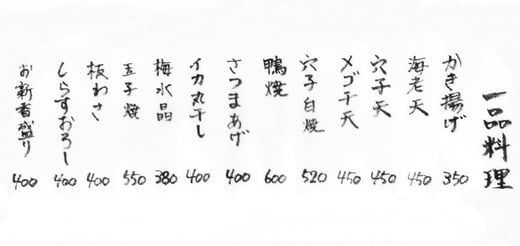 一品料理
かき揚げ 350
海老天 450
穴子天 450
メゴチ天 450
穴子白焼 520
鴨焼 600
さつまあげ 400
イカ丸干し 400
梅水晶 380
玉子焼 550
板わさ 400
しらすおろし 400
お新香盛り 400